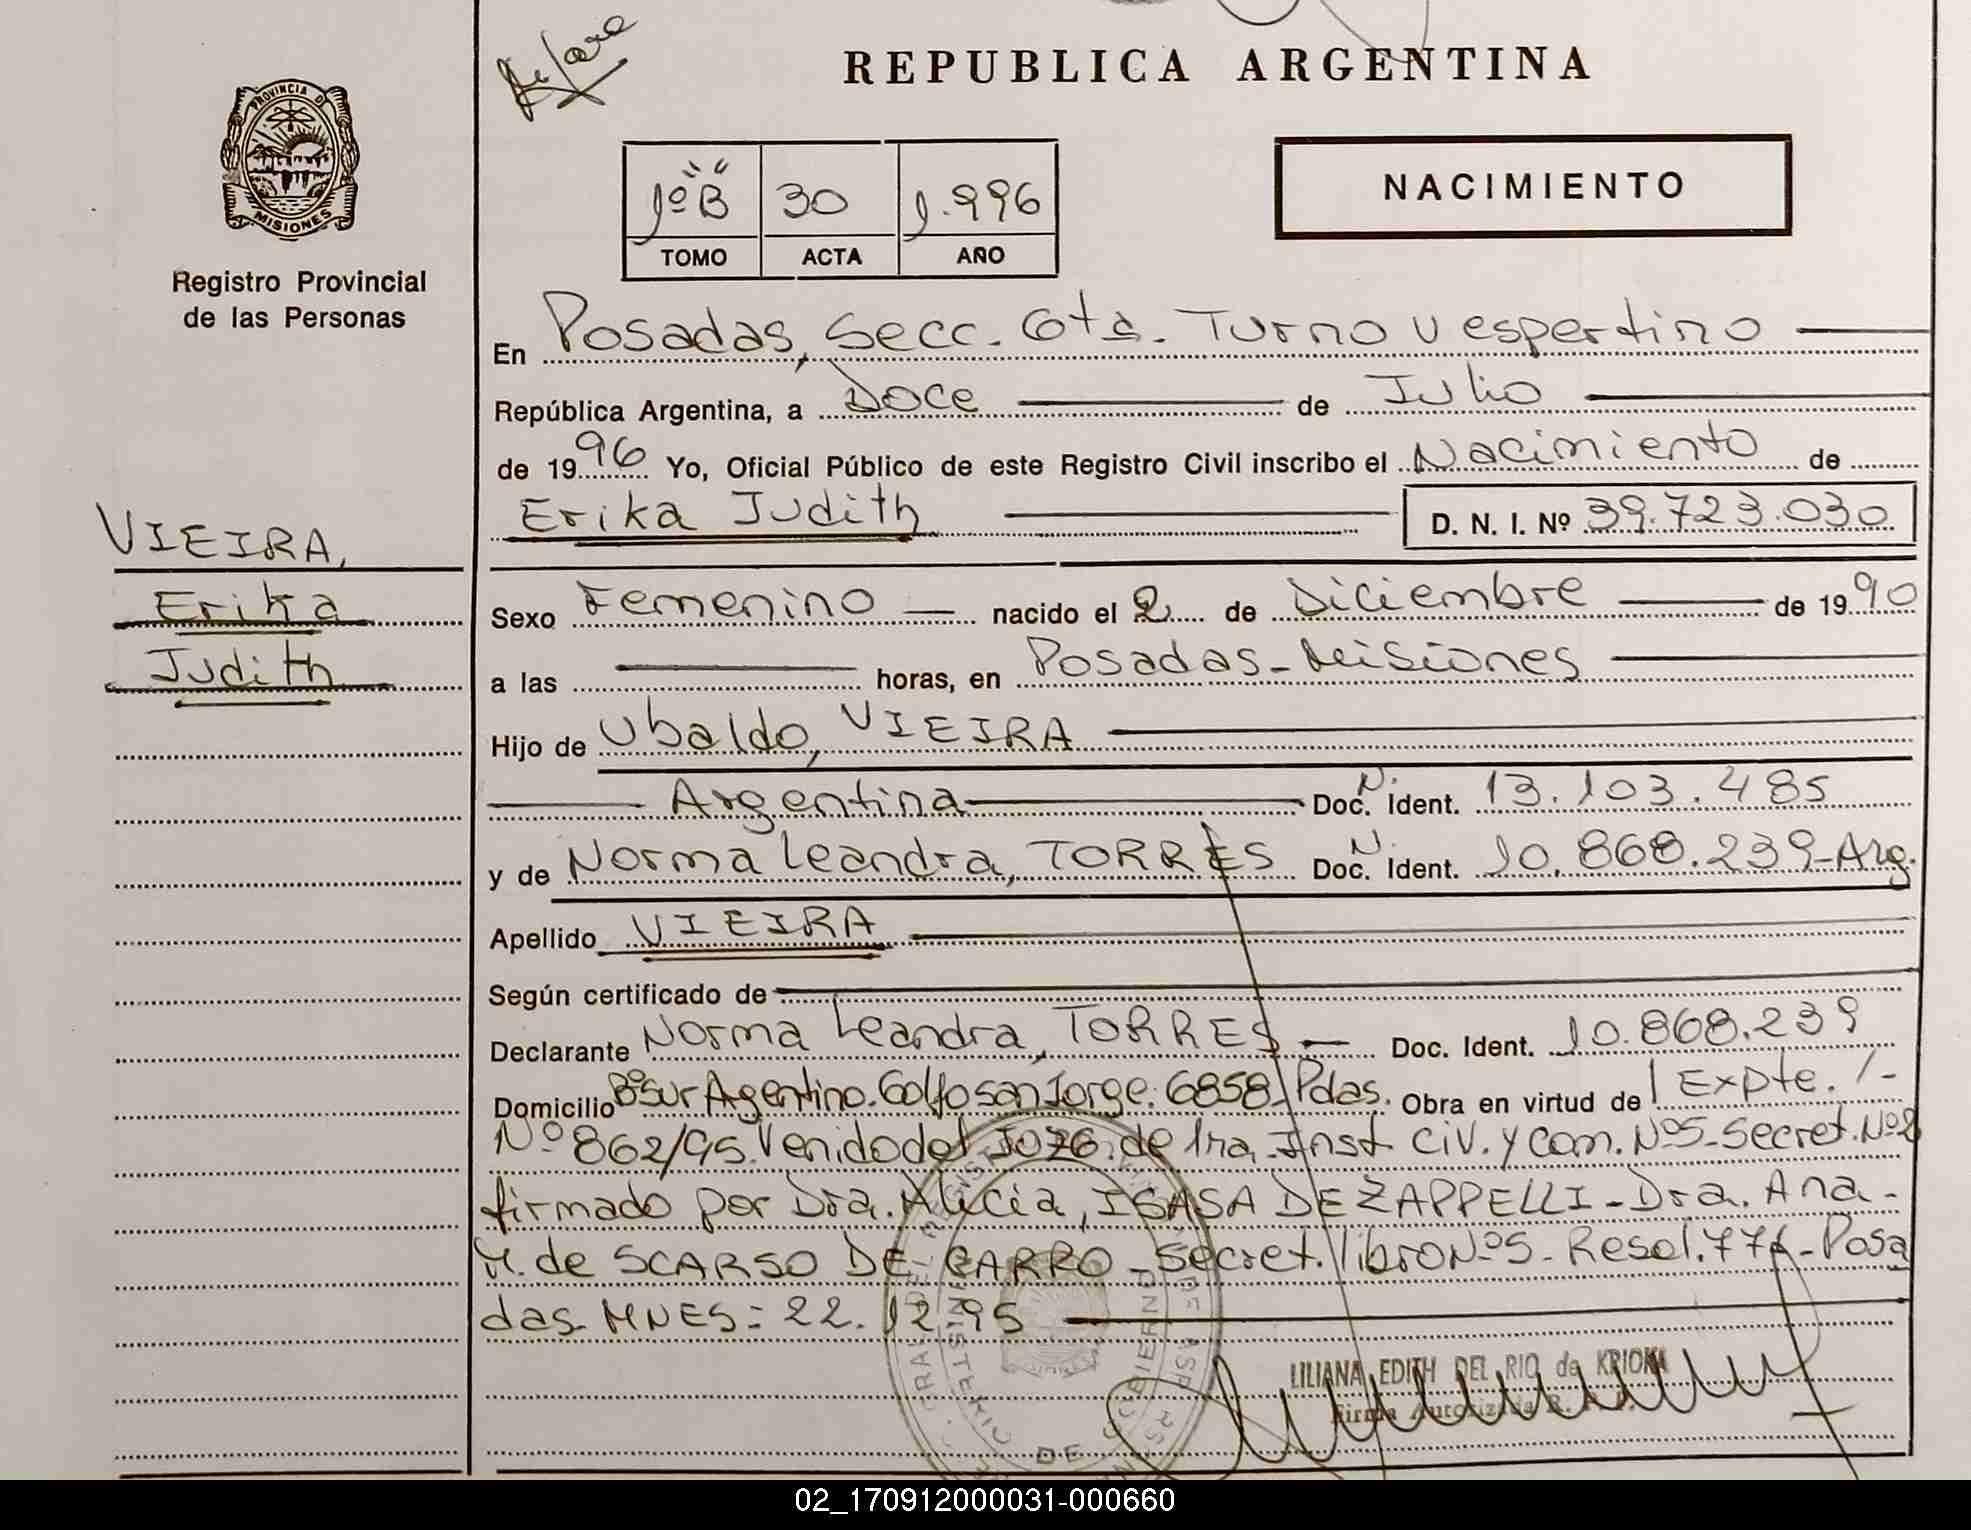 REPUBLICA ARGENTINA
PROVINCIA DE
MISIONES
Registro Provincial
de las Personas
1º "B" 30 1.996
TOMO ACTA AÑO
NACIMIENTO
En Posadas, Secc. 6ta. Turno Vespertino
República Argentina, a Doce de Julio
de 1996 Yo, Oficial Público de este Registro Civil inscribo el Nacimiento de
Erika Judith D. N. I. Nº 39.723.030
VIEIRA,
Erika
Judith
Sexo Femenino nacido el 2 de Diciembre de 1990
a las horas, en Posadas-Misiones
Hijo de Ubaldo, VIEIRA
Argentina Doc. N. Ident. 13.103.485
y de Norma Leandra, TORRES Doc. N. Ident. 10.868.239-Arg.
Apellido VIEIRA
Según certificado de
Declarante Norma Leandra, TORRES Doc. Ident. 10.868.239
Domicilio Bº Sur Argentino. Golfo san Jorge. 6858-Pdas. Obra en virtud de Expte. /-
Nº 862/95. Venido del Juzg. de 1ra. Inst. Civ. y Com. Nº5-Secret. Nº2
firmado por Dra. Alicia, ISASA DE ZAPPELLI-Dra. Ana-
M. de SCARSO DE CARRO-Secret. libro Nº5-Resol. 774-Posa
das. MNES: 22.12.95
LILIANA EDITH DEL RIO de KRIOKI
Firma Autorizada
02_170912000031-000660